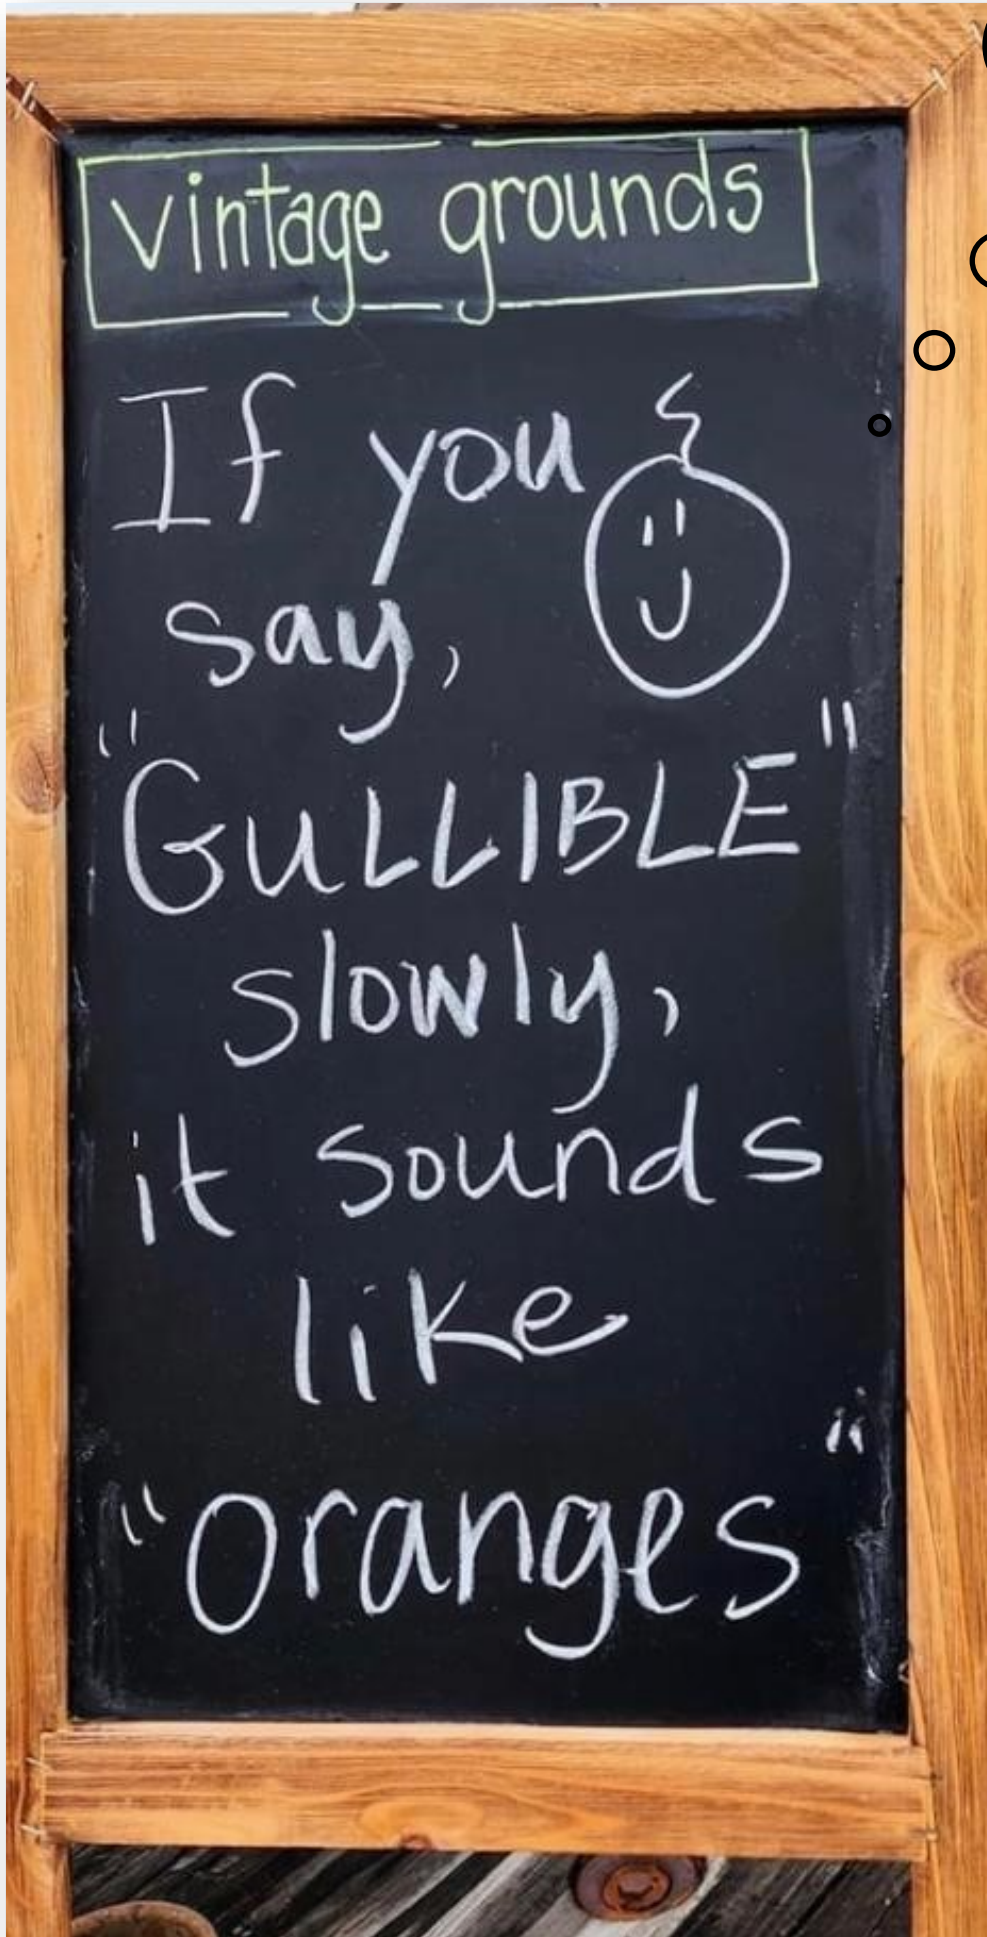 vintage grounds
If you
say,
"GULLIBLE"
slowly,
it sounds
like
"oranges"